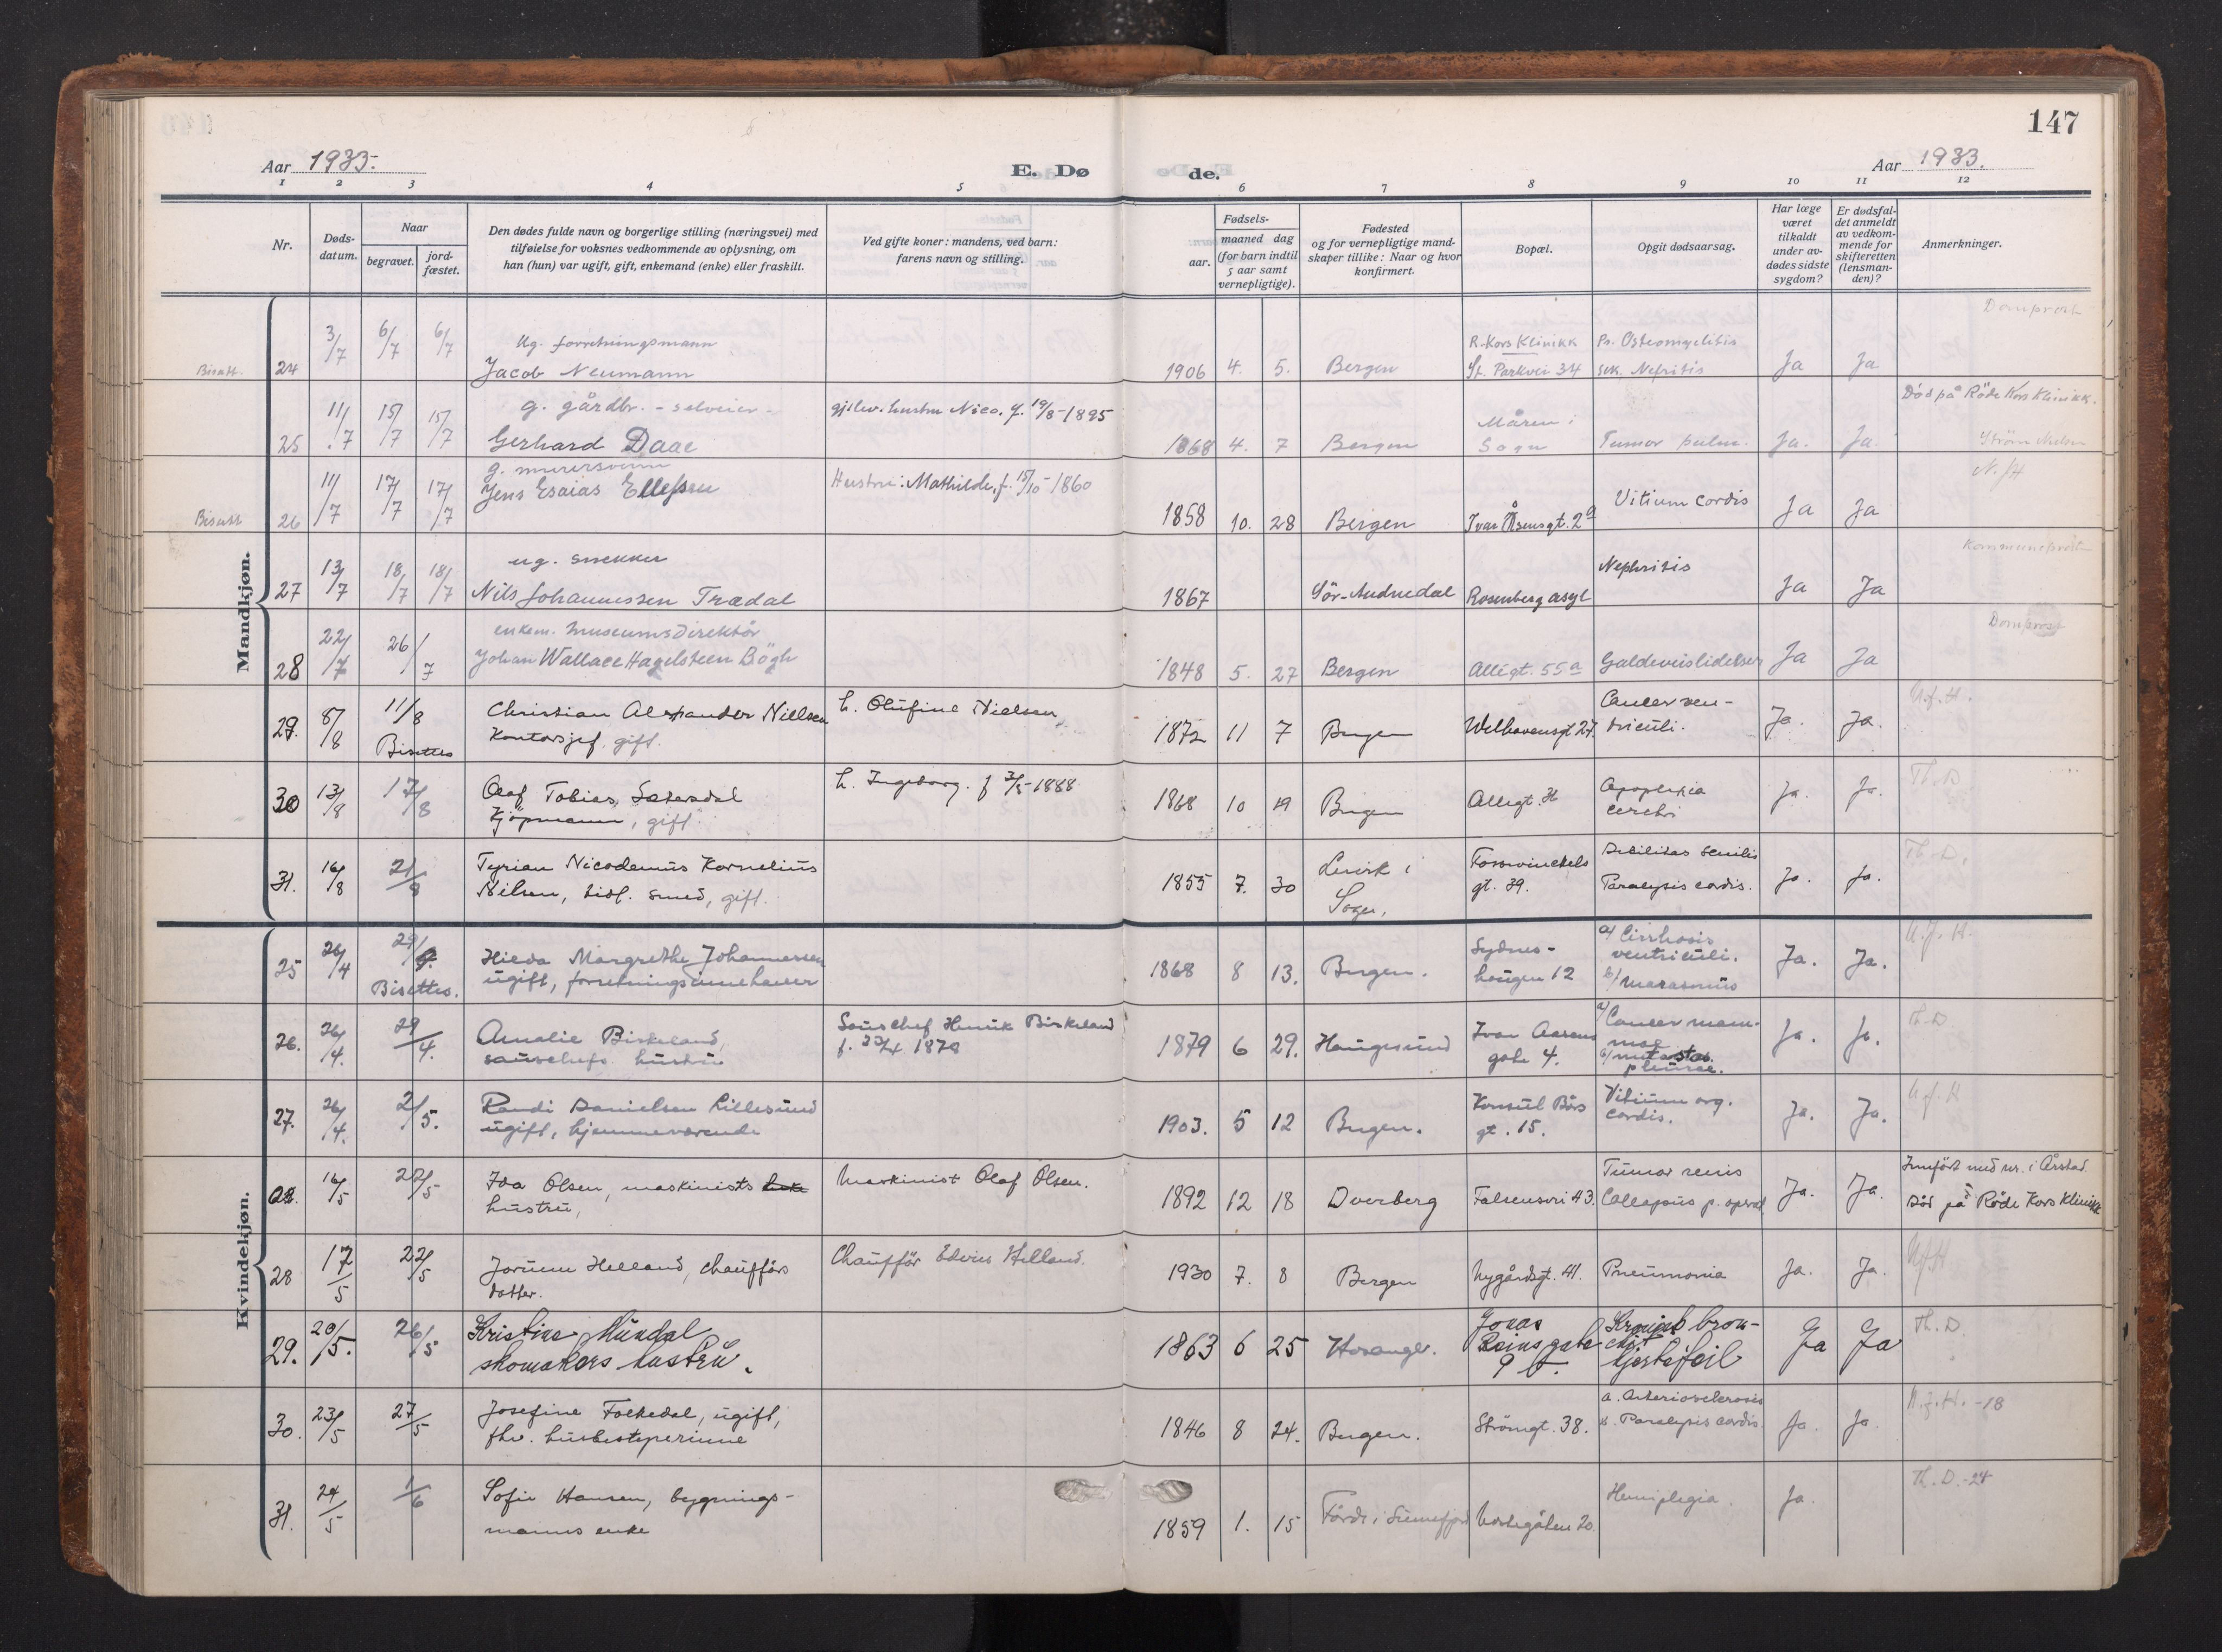 147
Aar 1933.
E. Dø
de.
Aar 1933.
1 2 3 4 5 6 7 8 9 10 11 12
Nr.
Døds-
datum.
Naar
begravet.
jord-
fæstet.
Den dødes fulde navn og borgerlige stilling (næringsvei) med
tilføielse for voksnes vedkommende av oplysning, om
han (hun) var ugift, gift, enkemand (enke) eller fraskilt.
Ved gifte koner: mandens, ved barn:
farens navn og stilling.
Fødsels-
aar.
maaned dag
(for barn indtil
5 aar samt
vernepligtige).
Fødested
og for vernepligtige mand-
skaper tillike: Naar og hvor
konfirmert.
Bopæl.
Opgit dødsaarsag.
Har læge
været
tilkaldt
under av-
dødes sidste
sygdom?
Er dødsfal-
det anmeldt
av vedkom-
mende for
skifteretten
(lensman-
den)?
Anmerkninger.
Mandkjøn.
Bisatt. 24 3/7 6/7 6/7
Ug. forretningsmann
Jacob Neumann
1906 4. 5. Bergen
R. Kors Klinikk
St. Parkvei 34
Pr. Osteomyelitis
sek. Nefritis
Ja Ja
Domprost
25 11/7 15/7 15/7
g. gårdbr. - selveier -
Gerhard Daae
gjtlev. hustru Nico. f. 19/8-1895
1868 4. 7 Bergen
Måren i
Sogn
Tumor pulm.
Ja. Ja.
Död på Röde Kors Klinikk.
Bisatt 26 11/7 17/7 17/7
g. murersvenn
Jens Esaias Ellefsen
Hustru: Mathilde, f. 15/10-1860
1858 10. 28 Bergen
Ivar Åsensgt. 2a
Vitium cordis
Ja Ja
N./H
27 13/7 18/7 18/7
ug. snekker
Nils Johannessen Trædal
1867
Sör-Audnedal
Rosenberg asyl
Nephritis
Ja Ja
Kommuneprest
28 22/7 26/7
enkem. museumsdirektör
Johan Wallace Hagelsteen Bögh
1848 5. 27 Bergen
Allégt. 55a
Galdeveislidelser
Ja Ja
Domprost
29. 8/8 11/8
Bisettes
Christian Alexander Nielsen
Kontorsjef, gift.
h. Olüfine Nielsen
1872 11 7 Bergen
Welhavensgt 27.
Cancer ven-
triculi.
Ja. Ja.
30 13/8 17/8
Olaf Tobias Sætersdal
Kjöpmann, gift.
h. Ingeborg. f 3/5-1888
1868 10 19 Bergen
Allegt.
Apoplexia
cerebri
Ja. Ja.
Th. D
31. 16/8 21/8
Tyrian Nicodemus Kornelius
Nilsen, tidl. smed, gift.
1855 7. 30
Levik i
Sogn.
Fosswinckels
gt. 39.
Debilitas senilis
Paralysis cordis.
Ja. Ja.
Th. D.
Kvindekjøn.
25 26/4 29/4.
Bisettes.
Hilda Margrethe Johannessen
ugift, forretningsinnehaver
1868 8 13. Bergen.
Sydnes-
haugen 12
a/ Cirrhosis
ventriculi.
b/ marasmus
Ja. Ja.
26. 26/4. 29/4.
Amalie Birkeland,
sauschefs hustru
Souschef Henrik Birkeland
1879 6 29. Haugesund
Ivar Aasens
gate 4.
a/ Cancer mam-
mae
b/ metastas.
pleurae.
Ja. Ja.
Th. D
27. 26/4. 2/5.
Randi Danielsen Lillesund
ugift, hjemmeværende
1903. 5 12 Bergen.
Konsul Börs
gt. 15.
Vitium org.
cordis.
Ja. Ja.
28. 16/5 22/5
Ida Olsen, maskinists
hustru,
Maskinist Olaf Olsen.
1892 12 18 Dverberg
Falsensvei 43.
Tumor renis
Collapsus p. operat
Ja. Ja.
Innfört med nr. i Årstad
Död på Röde Kors Klinikk
28 17/5 22/5
Jorunn Helland, chaufförs
datter.
Chaufför Edvin Helland.
1930 7. 8 Bergen
Nygårdsgt. 41.
Pneumonia
Ja. Ja.
29. 20/5. 26/5
Kristine Mundal
skomakers hustru.
1863 6 25 Hosanger.
Jonas
Reinsgate
9 b.
Kronisk bron-
chit
hjertefeil
Ja Ja
Th. D.
30. 23/5 27/5
Josefine Folkedal, ugift,
fhv. husbestyrerinne
1846 8 24. Bergen.
Strömgt. 38.
a. Arteriosclerosis
b. Paralysis cordis.
Ja. Ja.
31. 24/5 1/6
Sofie Hansen, bygnings-
manns enke
1859 1. 15
Förde i Sunnfjord
Hemiplegia.
Ja.
Th. D.-24